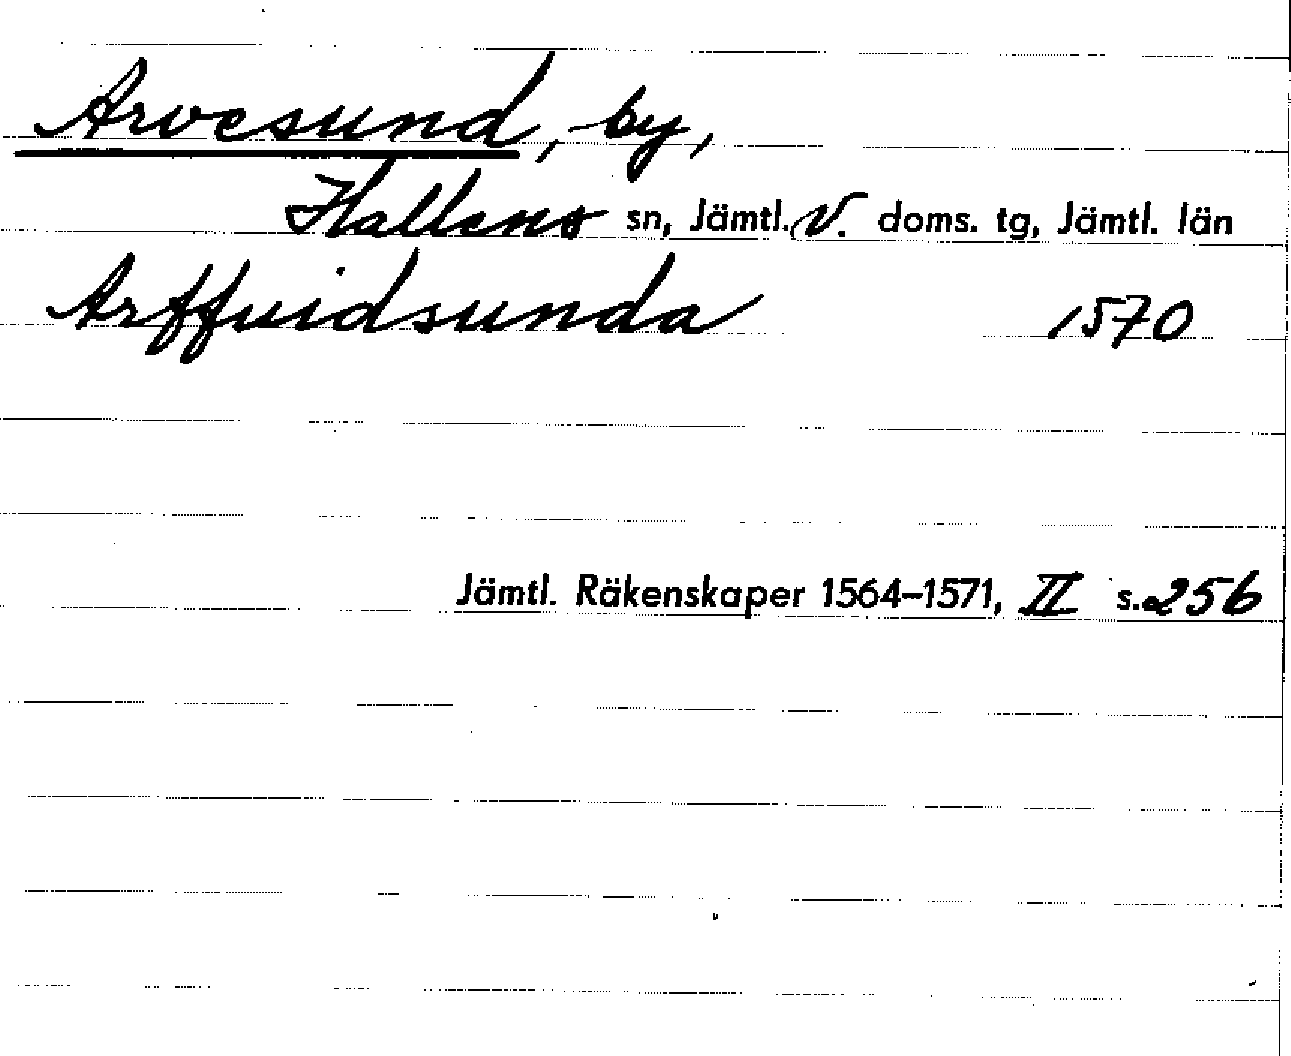 Arvesund, by,
Hallens sn, Jämtl. V. doms. tg, Jämtl. län
Arffuidsunda 1570
Jämtl. Räkenskaper 1564–1571, II s. 256